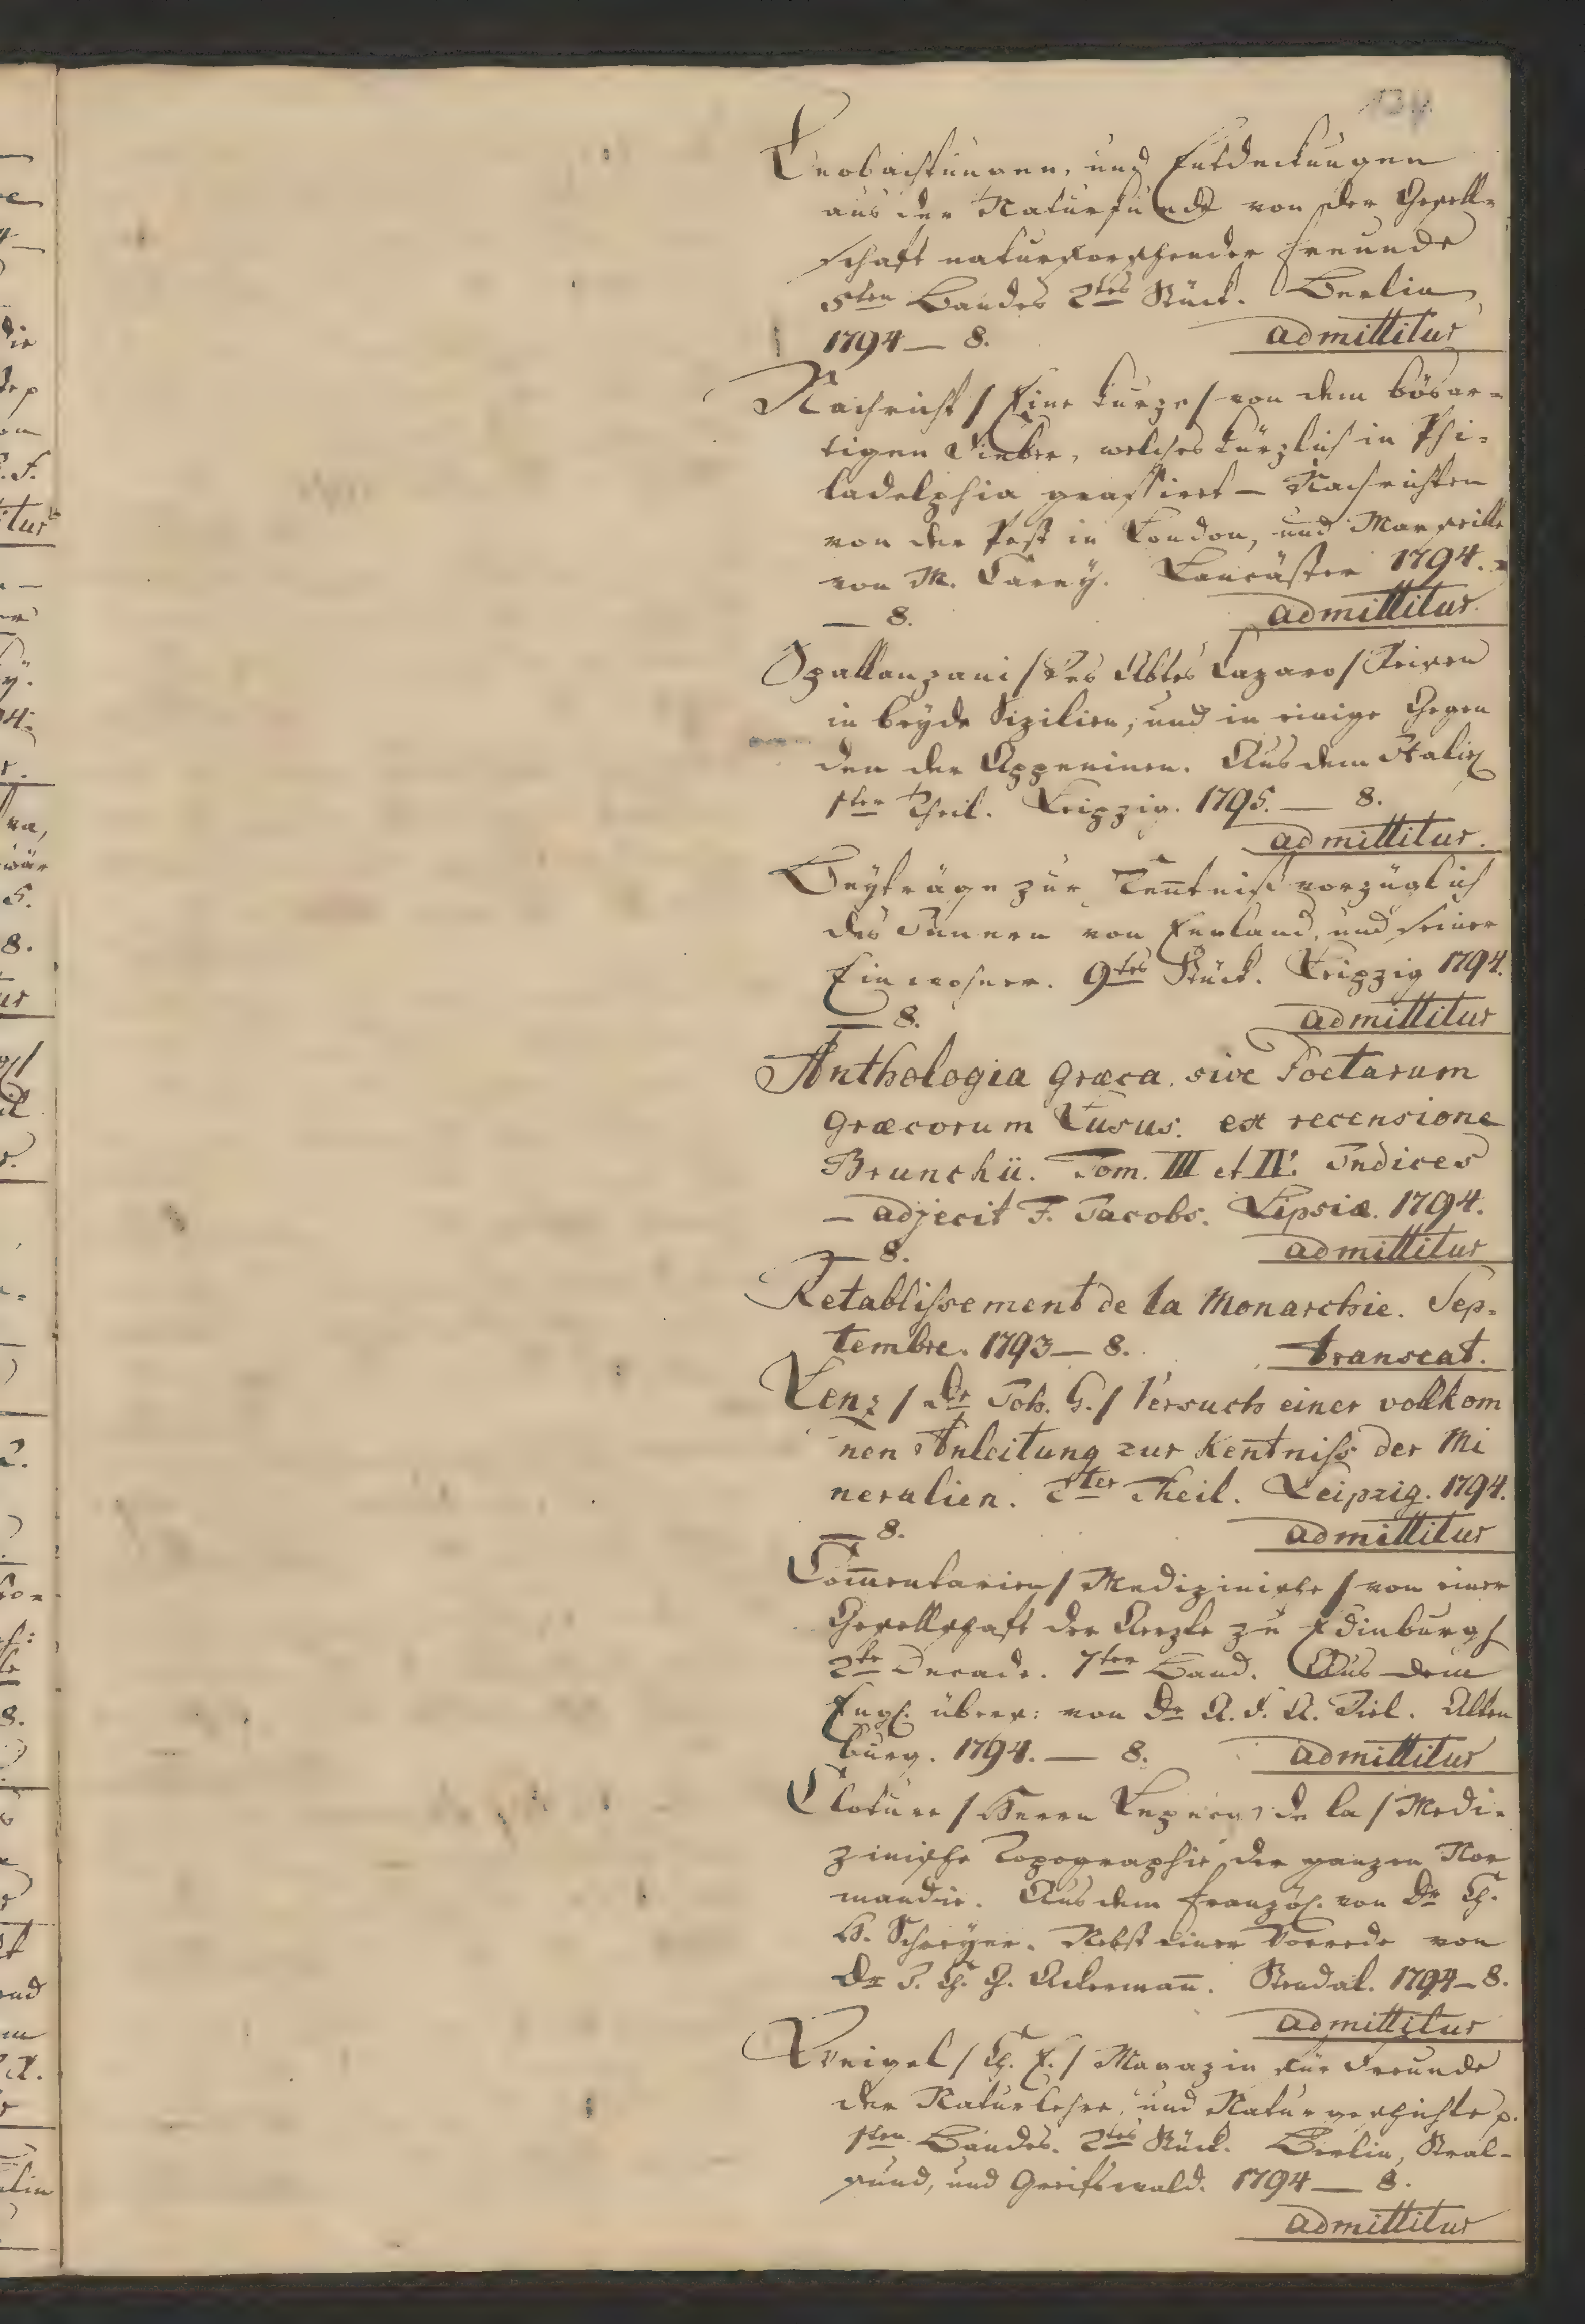 Beobachtungen, und Entdeckungen
aus der Naturkunde von der Gesell-
schaft naturforschender Freunde
5ten Bandes 2tes Stück. Berlin,
1794 — 8. admittitur
Nachricht / Eine kurze / von dem bösar-
tigen Fieber, welches kürzlich in Phi-
ladelphia grassiret — Nachrichten
von der Pest in London, und Marseille
von M. Carey. Lancäster 1794.
— 8. admittitur.
Spallanzani / Des Abtes Lazaro / Reisen
in beyde Sizilien, und in einige Gegen
den der Appeninen. Aus dem Italie
1ter Theil. Leipzig. 1795. — 8.
admittitur.
Beyträge zur Kentniß vorzüglich
des Innern von England, und seiner
Einwohner. 9tes Stück. Leipzig 1794.
— 8. admittitur
Anthologia græca. sive Poetarum
græcorum Lusus. ex recensione
Brunckii. Tom. III et IV. Indices
— adjecit F. Jacobs. Lipsiæ. 1794.
— 8. admittitur
Retablissement de la Monarchie. Sep-
tembre. 1793 — 8. transeat.
Lenz / Dr Joh. G. / Versuch einer vollkom
nen Anleitung zur Kentniss der Mi
neralien. 2ter Theil. Leipzig. 1794.
— 8. admittitur
Com̄entarien / Medizinische / von einer
Gesellschaft der Aerzte zu Edinburgh
2te Decade. 7ter Band. Aus dem
Engl. übers: von Dr A. F. A. Diel. Alten
burg. 1794. — 8. admittitur
Cloture / Herrn Lepecq de la / Medi-
zinische Topographie der ganzen Nor
mandie. Aus dem Französ. von Dr Ch.
H. Schreyer. Nebst einer Vorrede von
Dr J. C. G. Ackerman̄. Stendal. 1794 — 8.
admittitur
Weigel / Ch. E. / Magazin für Freunde
der Naturlehre, und Naturgeschichte p.
1ten Bandes. 2tes Stück. Berlin, Stral-
sund, und Greifswald. 1794 — 8.
admittitur